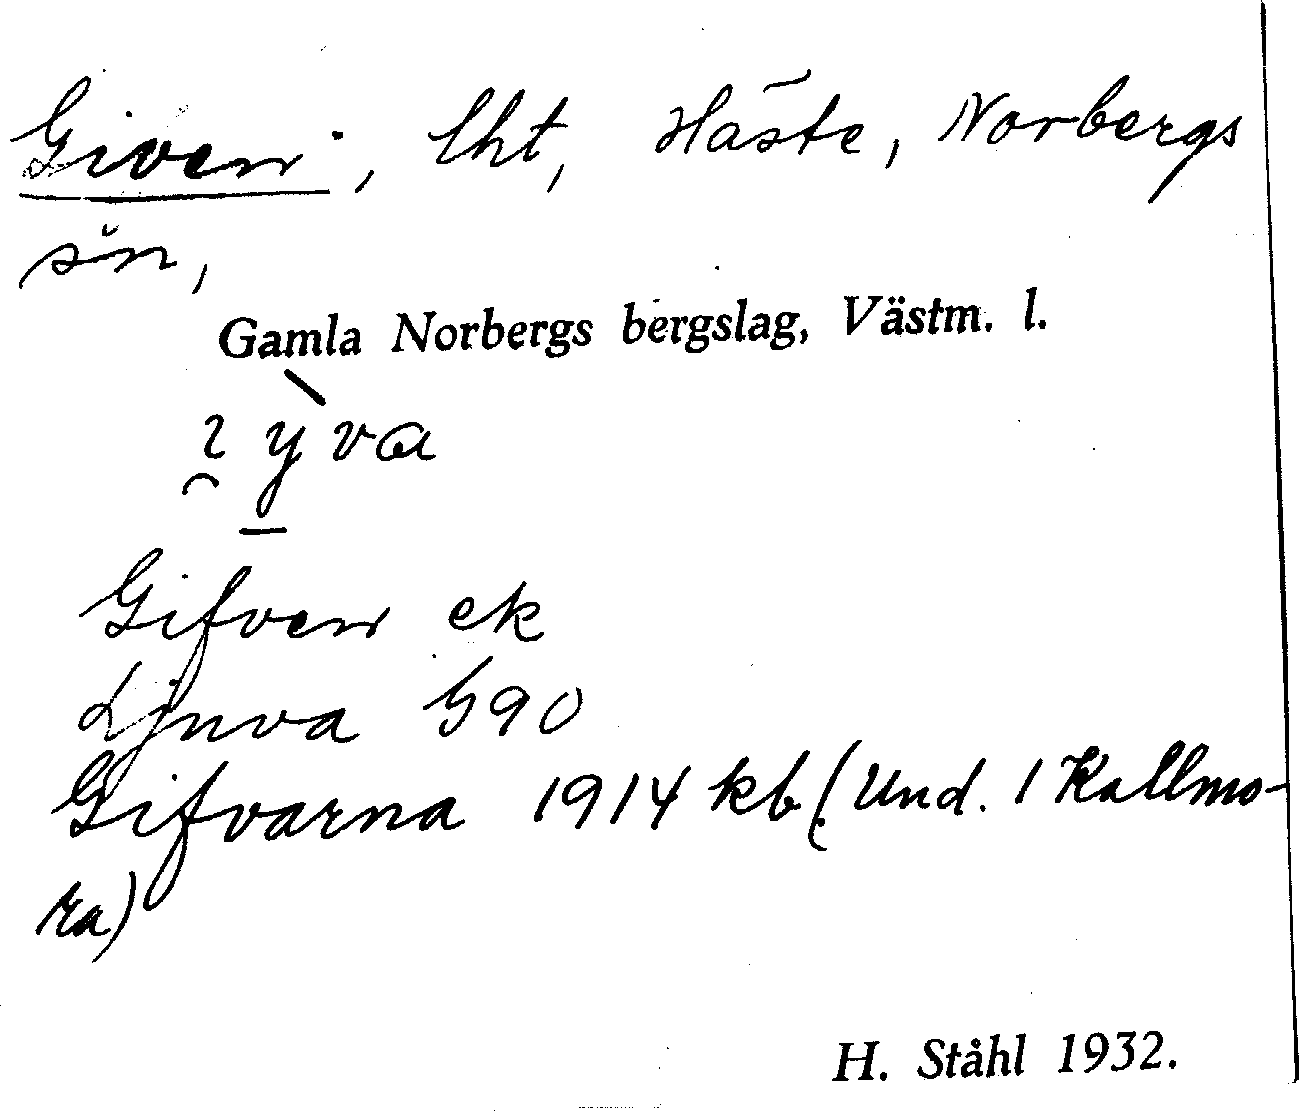 Given, lht, Häste, Norbergs
sn,
Gamla Norbergs bergslag, Västm. l.
yva
Gifven ek
Ljuva G90
Gifvarna 1914 kb. (Und. / Kallmo-
ra)
H. Ståhl 1932.